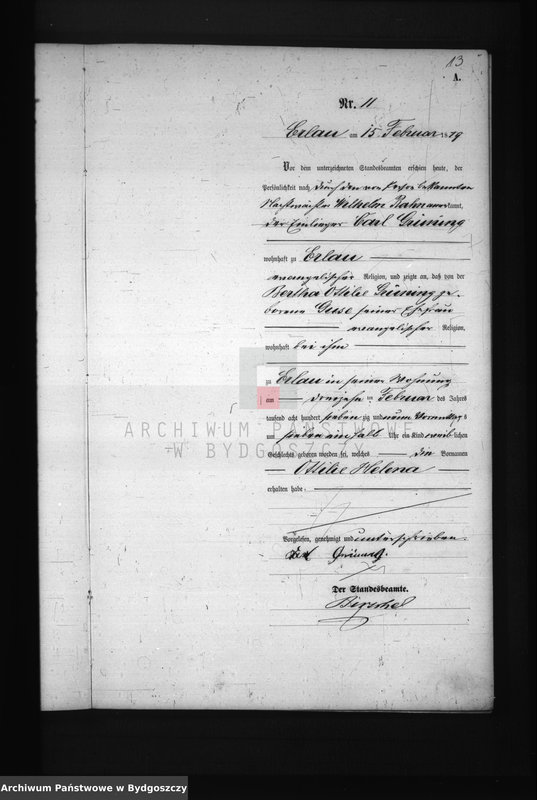 13
A.
Nr. 11
Erlau am 15. Februar 1879
Vor dem unterzeichneten Standesbeamten erschien heute, der
Persönlichkeit nach durch den von Person bekannten
Nachtwächter Wilhelm Rahm anerkannt,
der Einlieger Carl Grüning
wohnhaft zu Erlau
evangelischer Religion, und zeigte an, daß von der
Bertha Ottilie Grüning ge-
borene Guse seiner Ehefrau
evangelischer Religion,
wohnhaft bei ihm
zu Erlau in seiner Wohnung
am dreizehn ten Februar des Jahres
tausend acht hundert sieben zig und neun Vormittags
um sieben ein halb Uhr ein Kind weiblichen
Geschlechts geboren worden sei, welches die Vornamen
Ottilie Helena
erhalten habe
Vorgelesen, genehmigt und unterschrieben.
Der Standesbeamte.
ARCHIWUM PAŃSTWOWE
W BYDGOSZCZY
Archiwum Państwowe w Bydgoszczy